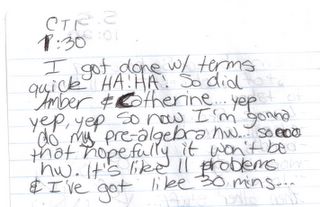 CTI
1:30
I got done w/ terms
quick HA! HA! So did
Amber & Catherine... yep
yep, yep so now I'm gonna
do my pre-algebra hw... so
that hopefully it won't be
hw. It's like 11 problems
& I've got like 30 mins...